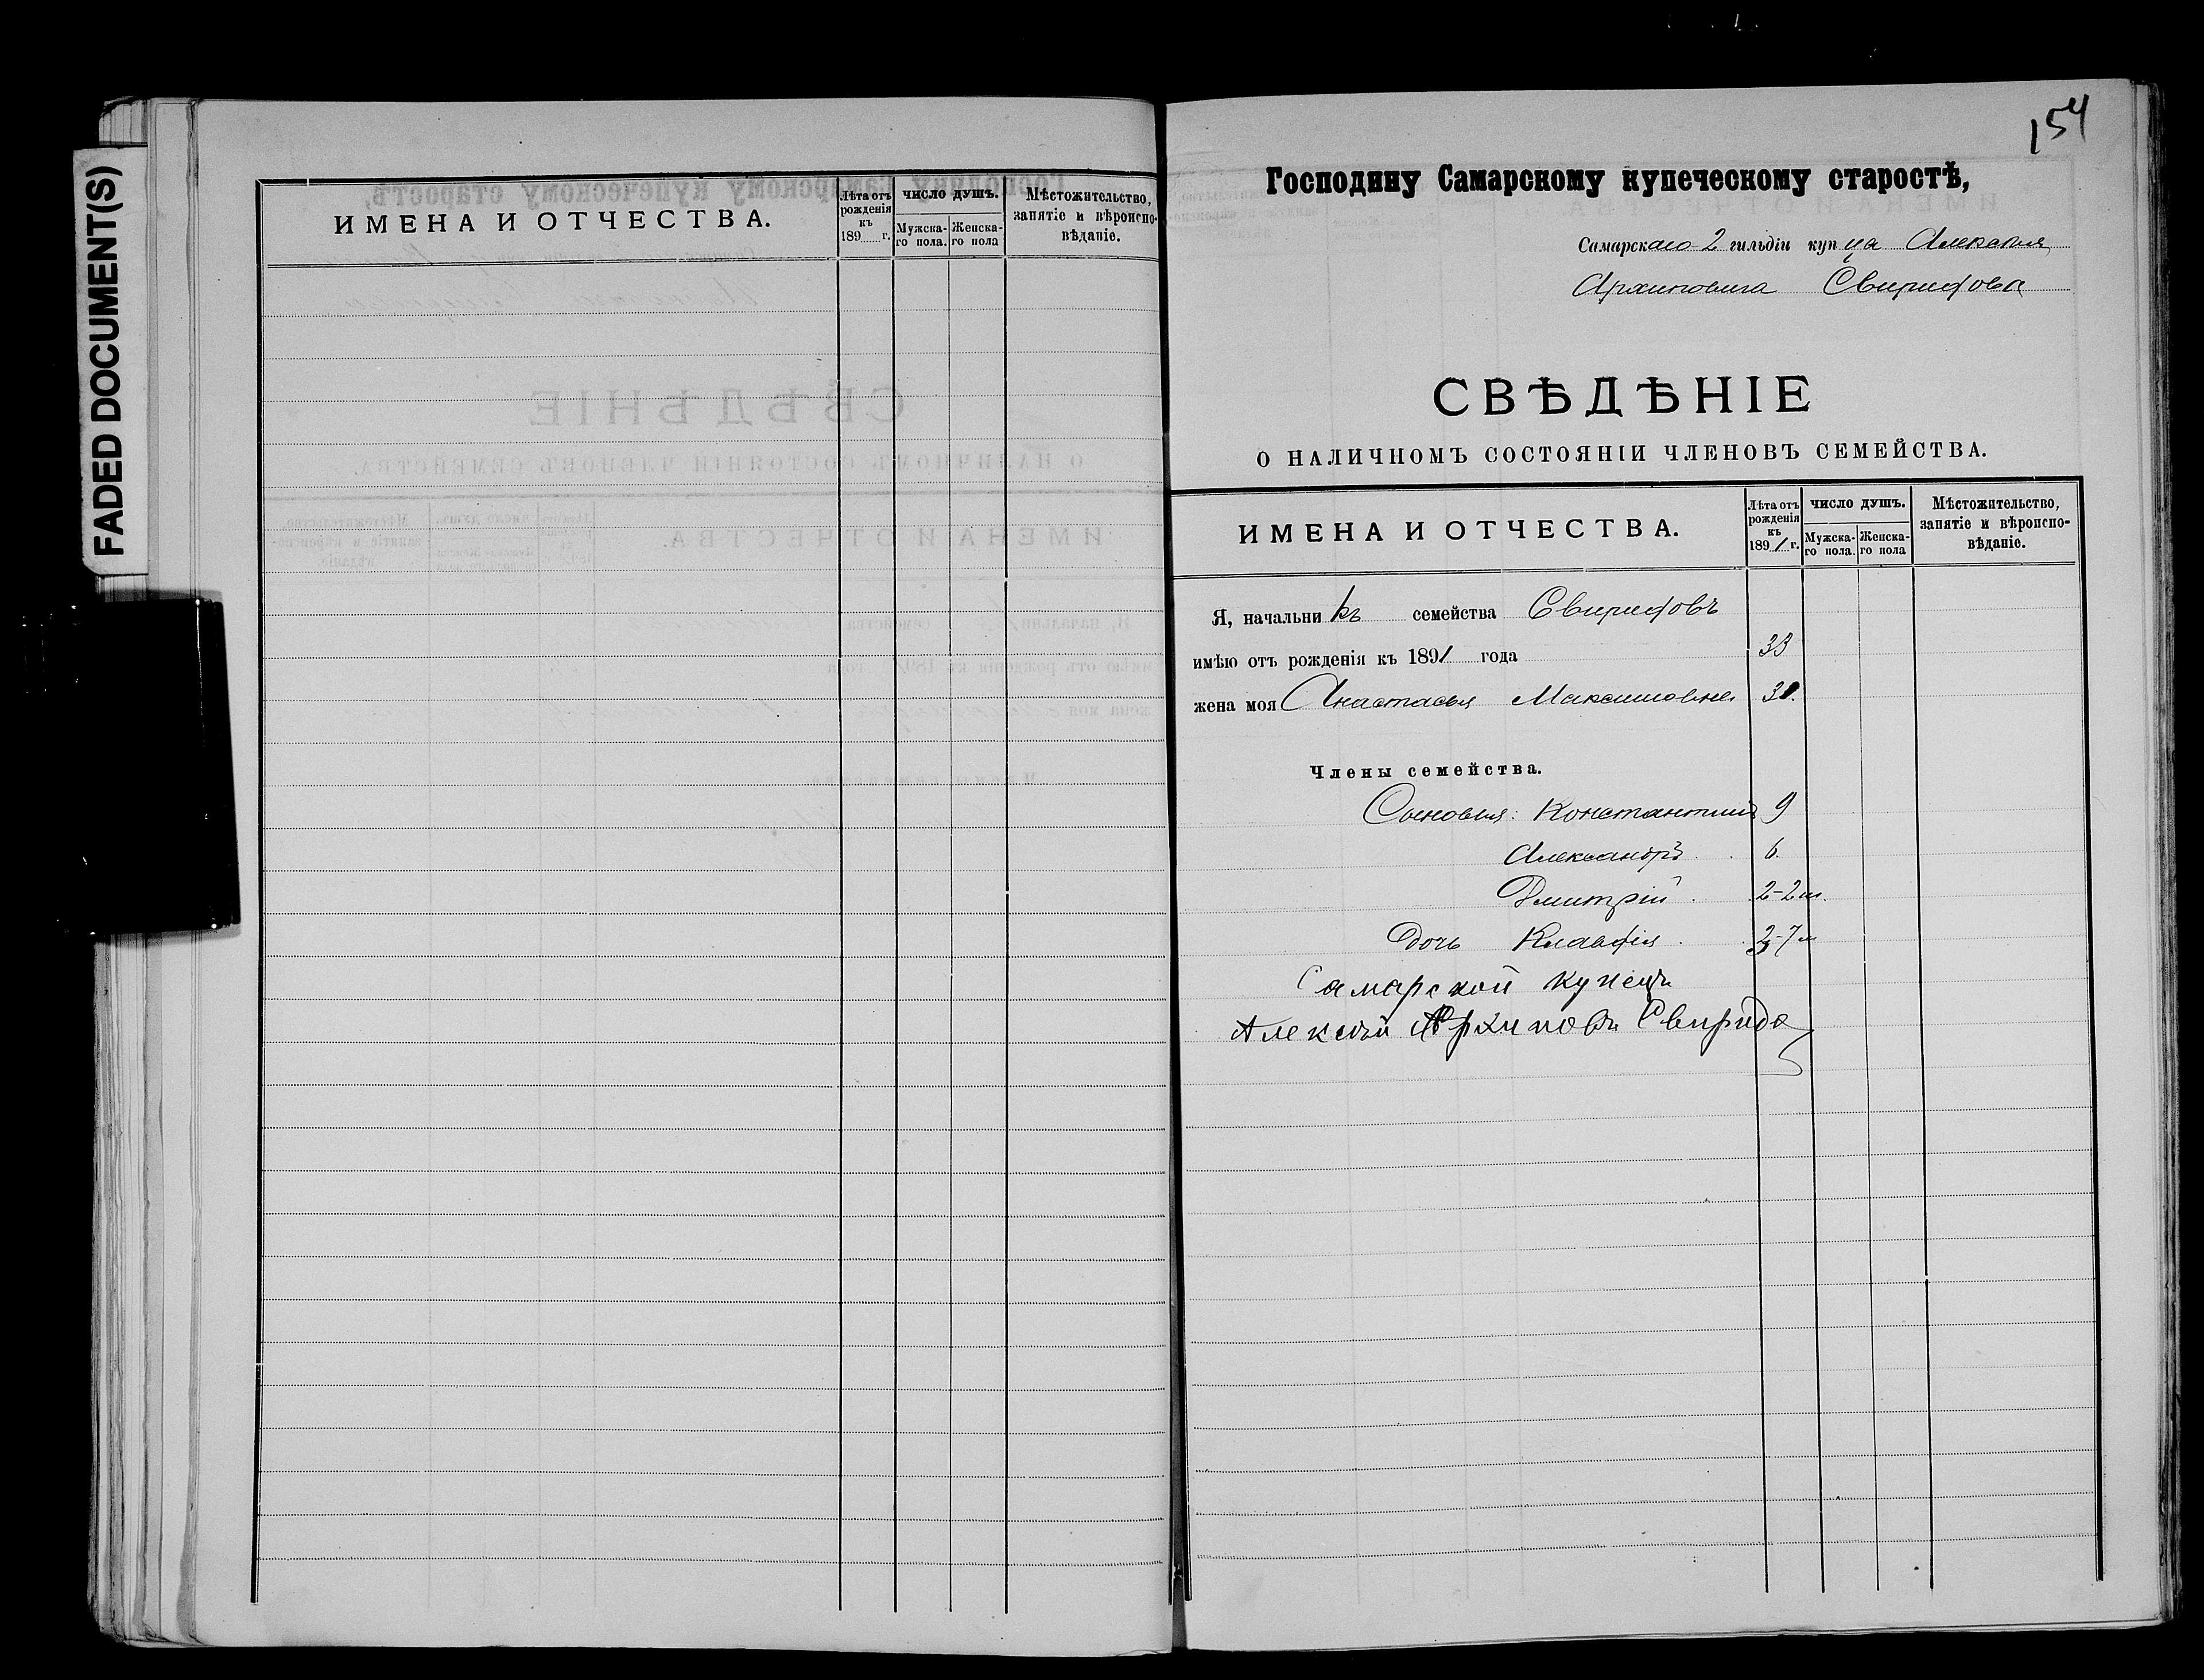 FADED DOCUMENT(S)
ИМЕНА И ОТЧЕСТВА.
Лѣта отъ рожденія къ 189 г.
ЧИСЛО ДУШЪ.
Мужска-го пола.
Женска-го пола
Мѣстожительство, занятіе и вѣроиспо-вѣданіе.
154
Господину Самарскому купеческому старостѣ,
Самарскаго 2 гильдіи купца Алексѣя
Архиповича Свиридова
СВѢДѢНІЕ
О НАЛИЧНОМЪ СОСТОЯНІИ ЧЛЕНОВЪ СЕМЕЙСТВА.
ИМЕНА И ОТЧЕСТВА.
Лѣта отъ рожденія къ 1891 г.
ЧИСЛО ДУШЪ.
Мужска-го пола.
Женска-го пола
Мѣстожительство, занятіе и вѣроиспо-вѣданіе.
Я, начальникъ семейства Свиридовъ
имѣю отъ рожденія къ 1891 года 33
жена моя Анастасья Максимовна
Члены семейства.
Сыновья: Константинъ 9
Александръ 6.
Дмитрій 2-2 м.
Дочь Клавдія
Самарской купецъ
Алексѣй Архиповъ Свиридо